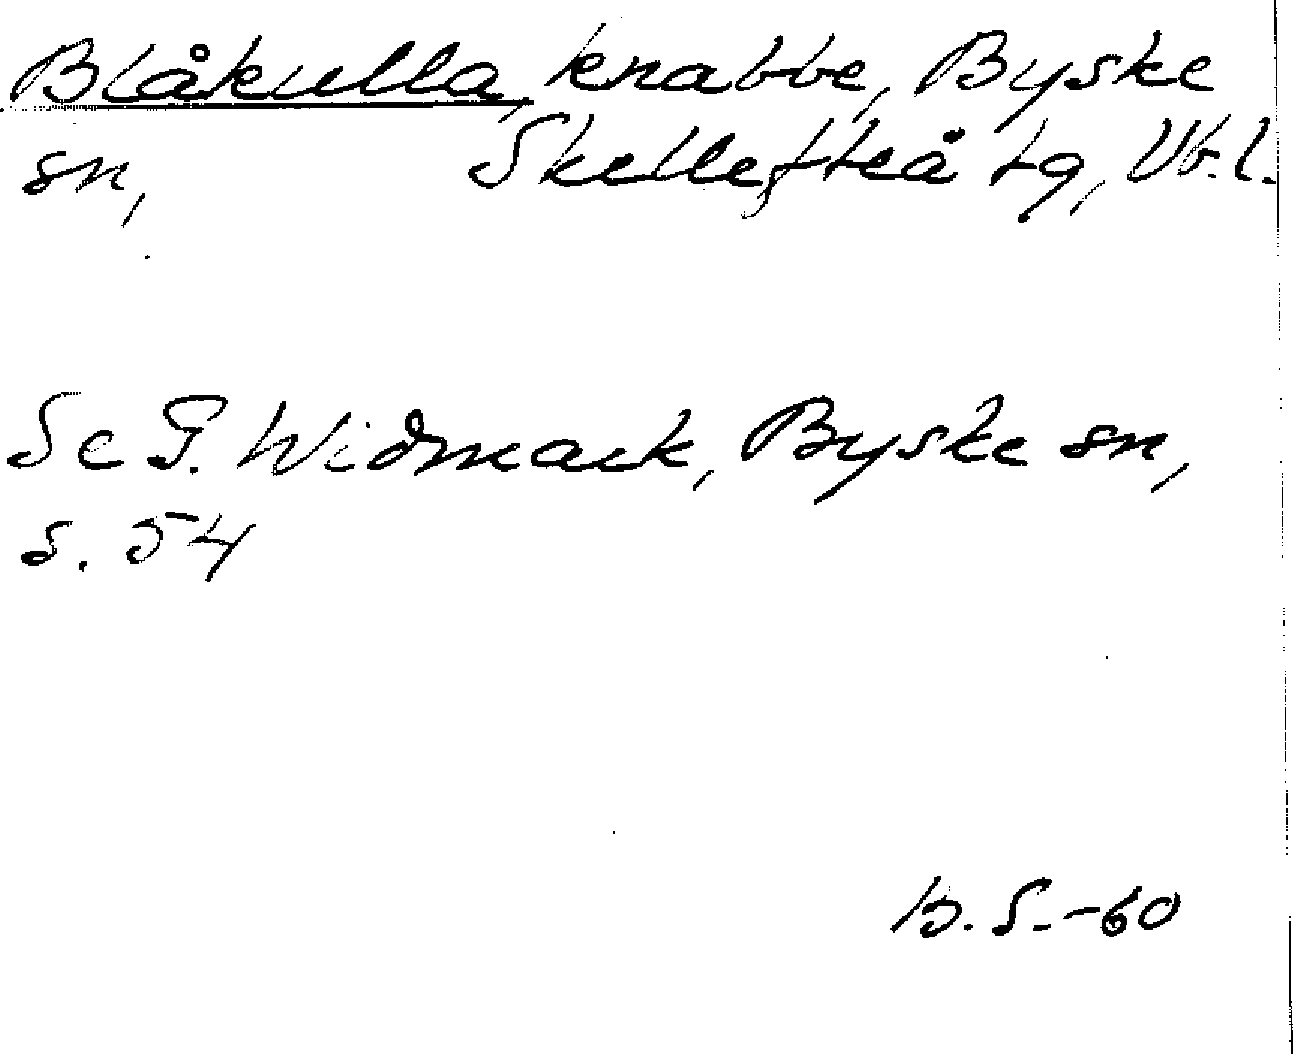 Blåkulla, knabbe, Byske
sn, Skellefteå tg, Vb.l.
Se G. Widmark, Byske sn,
s. 54
B.S.-60